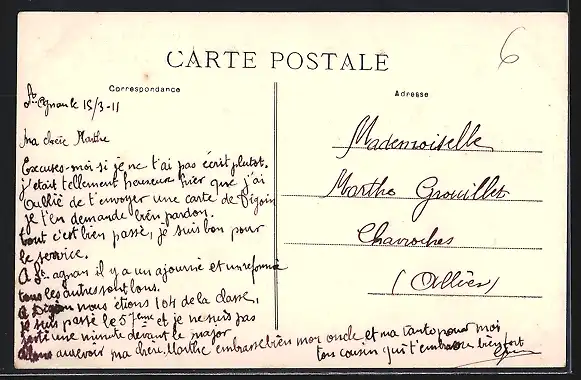 CARTE POSTALE
6
Correspondance
Adresse
St. Agnan le 15/3-11
Ma chère Marthe
Excuses-moi si je ne t'ai pas écrit plutot.
j'était tellement heureux hier que j'ai
oublié de t'envoyer une carte de Digoin
je t'en demande bien pardon.
tout c'est bien passé, je suis bon pour
le service.
A St. agnan il y a un ajourné et un reformé
tous les autres sont bons.
a Digoin nous étions 104 de la classe,
je suis passé le 57ème et je ne suis pas
resté une minute devant le major
aurevoir ma chère Marthe embrasse bien mon oncle et ma tante pour moi
ton cousin qui t'embrasse bien fort
Mademoiselle
Marthe Grouillet
Chavroches
(Allier)